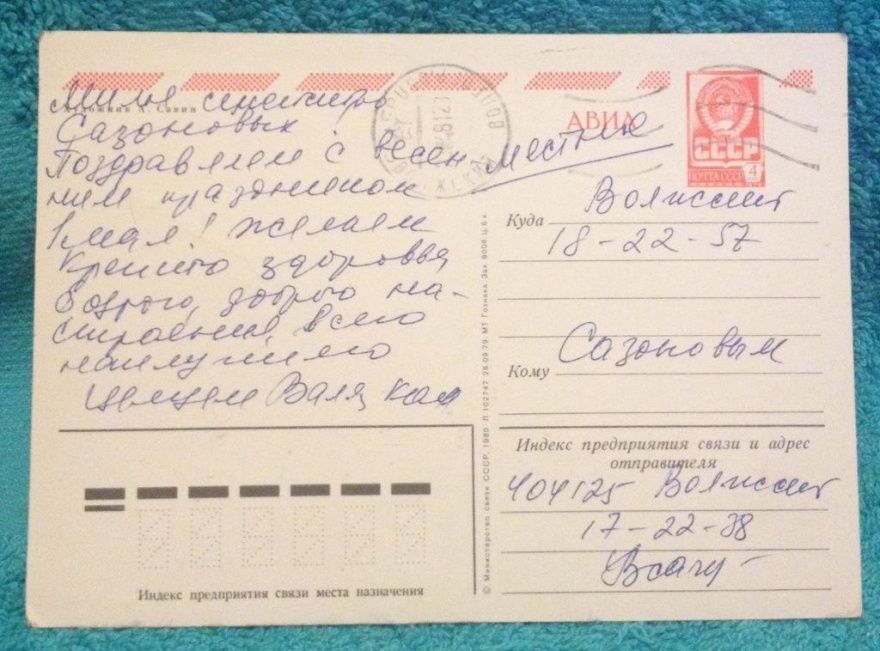 Художник А. Савин
Милое семейство
Сазоновых
Поздравляем с весен
ним праздником
1 мая! желаем
крепкого здоровья,
бодрого, доброго на-
строения, всего
наилучшего
Целуем Валя, Коля
АВИА
местное
СССР
ПОЧТА СССР
4
Куда
Волжский
18-22-57
Кому
Сазоновым
Индекс предприятия связи и адрес
отправителя
404125 Волжский
17-22-38
Индекс предприятия связи места назначения
© Министерство связи СССР, 1980. Л 102747 26.09.79. МТ Гознака. Зак. 9008. Ц. 6 к.